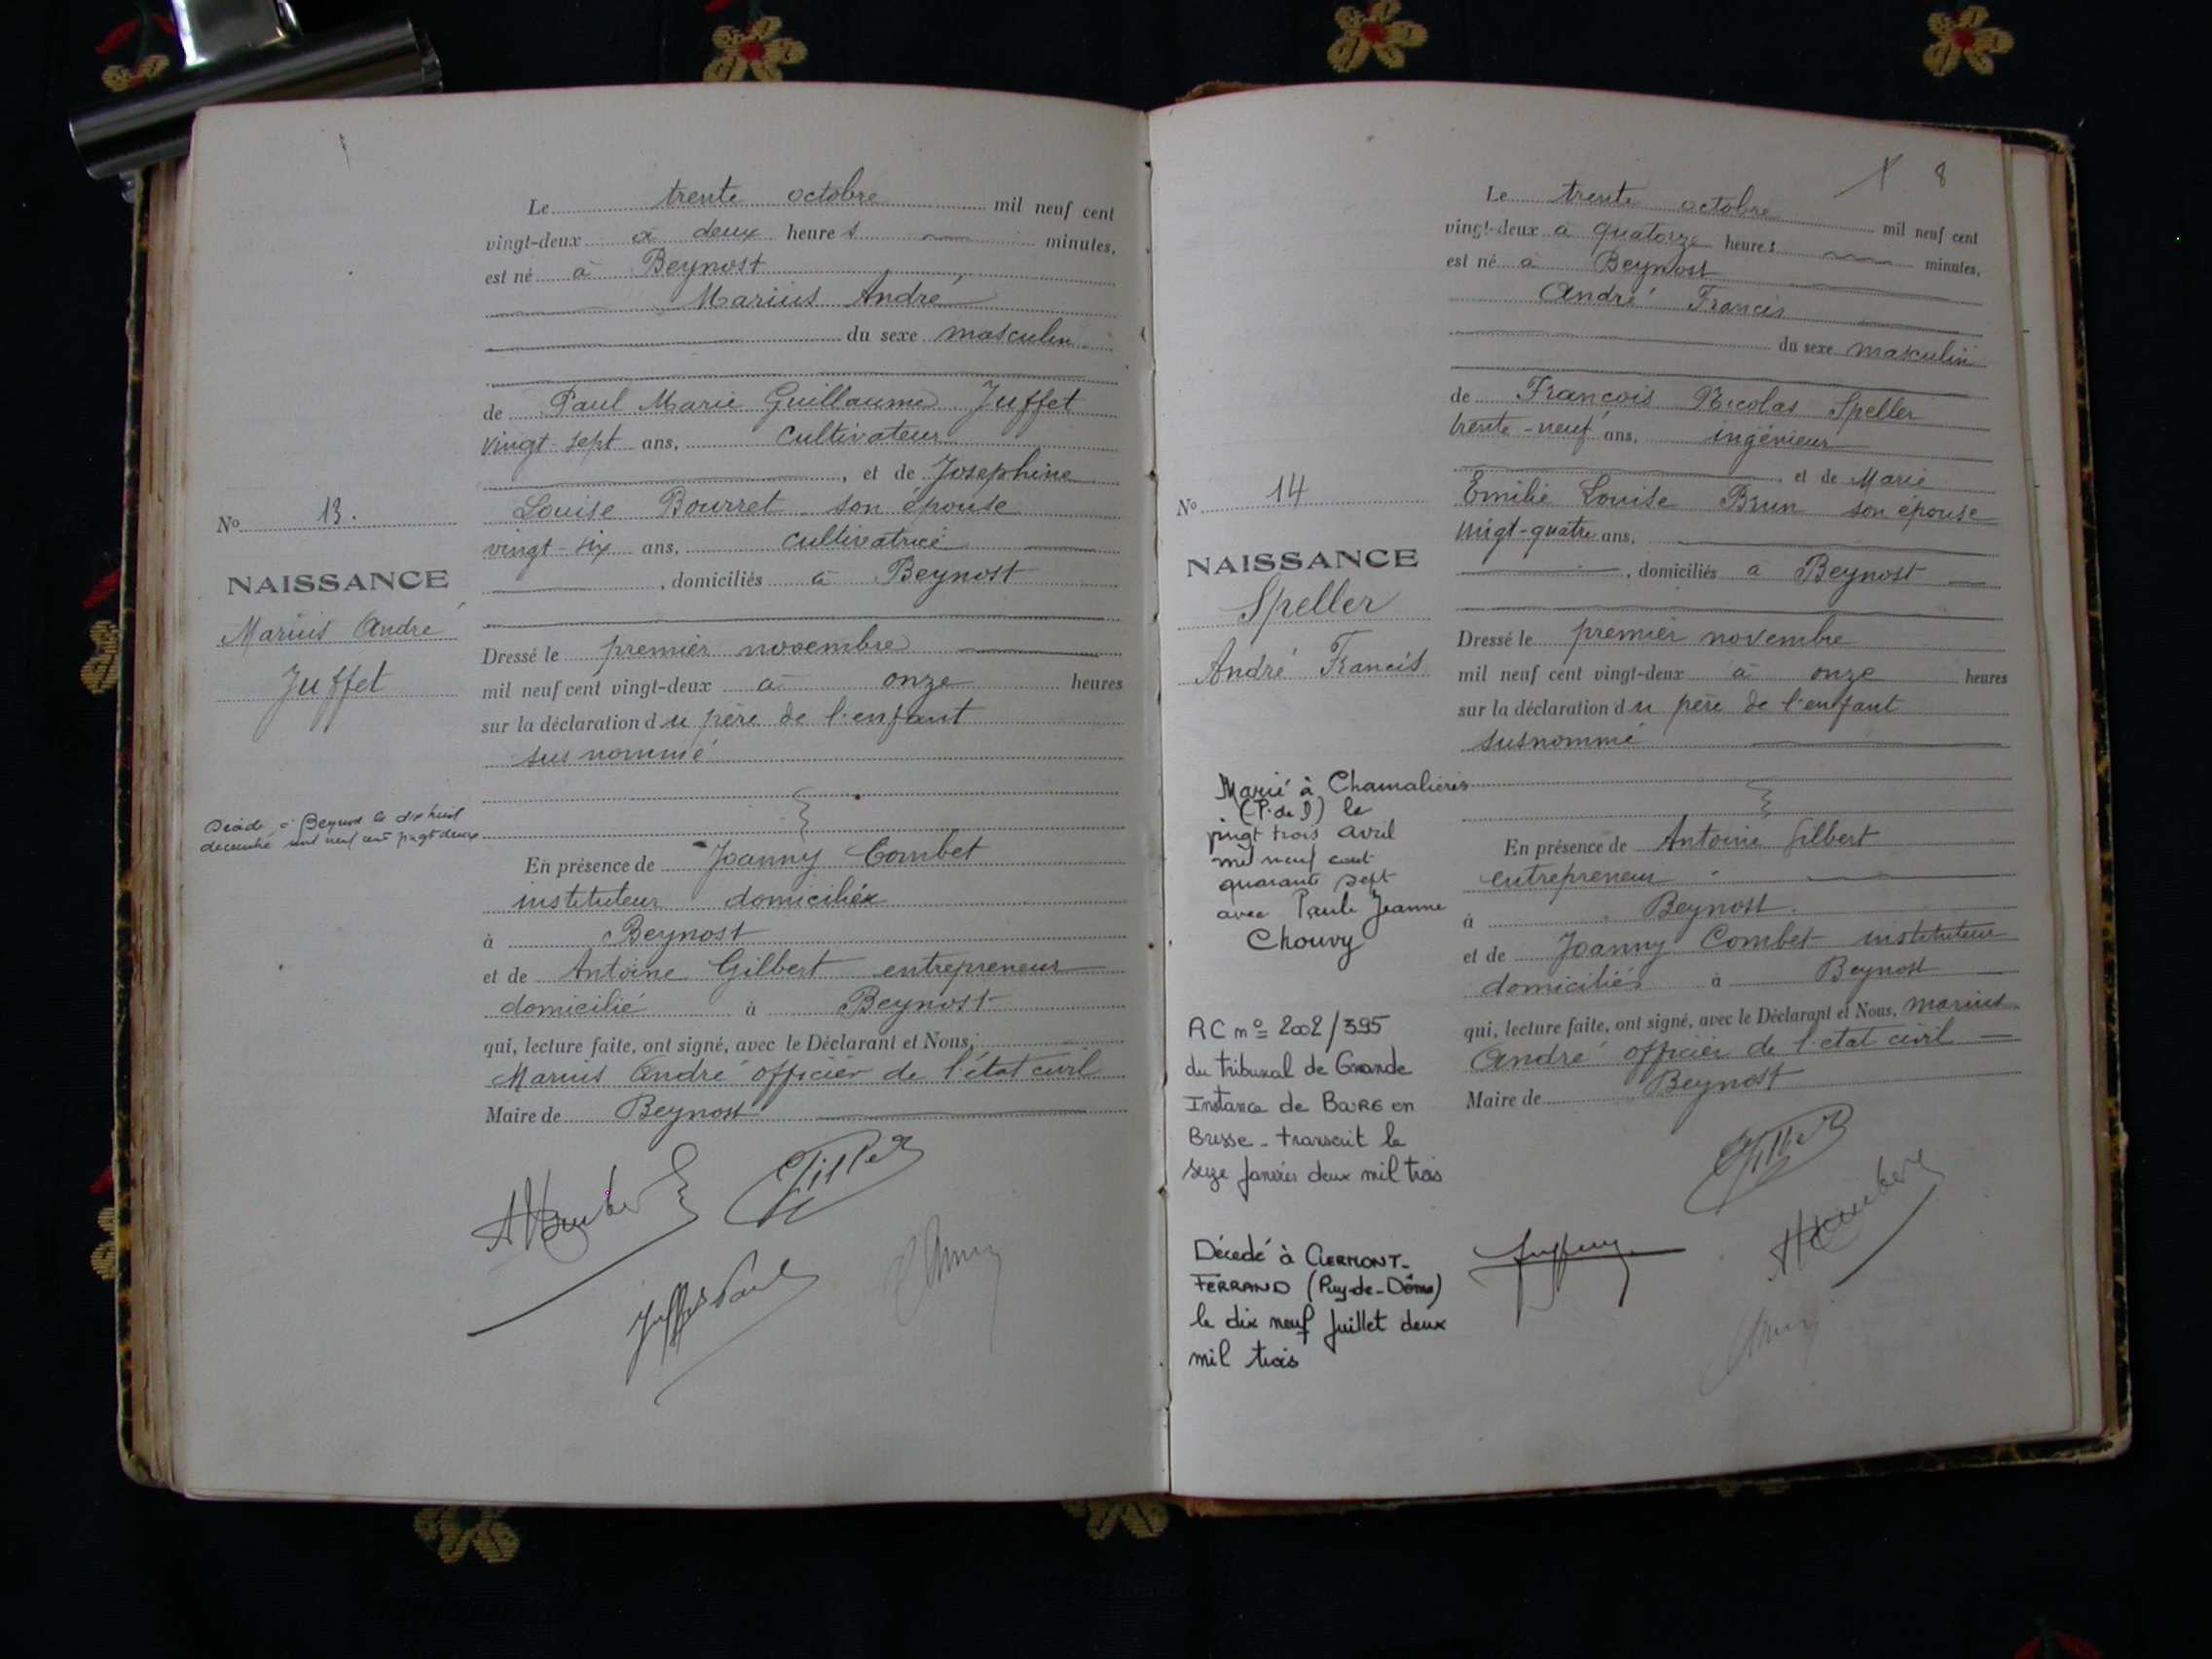 Le trente octobre mil neuf cent
vingt-deux à deux heures minutes,
est né à Beynost
Marius André
du sexe masculin
de Paul Marie Guillaume Juffet
vingt-sept ans, cultivateur
, et de Josephine
Louise Bourret son épouse
vingt-six ans, cultivatrice
, domiciliés à Beynost
Dressé le premier novembre
mil neuf cent vingt-deux à onze heures
sur la déclaration du père de l'enfant
sus nommé
En présence de Joanny Combet
instituteur domicilié
à Beynost
et de Antoine Gilbert entrepreneur
domicilié à Beynost
qui, lecture faite, ont signé, avec le Déclarant et Nous,
Marius André officier de l'état civil
Maire de Beynost
Juffet Paul
No 13.
NAISSANCE
Marius André
Juffet
Décédé à Beynost le dix huit
décembre mil neuf cent vingt deux
8
Le trente octobre mil neuf cent
vingt-deux à quatorze heures minutes,
est né à Beynost
André Francis
du sexe masculin
de François Nicolas Speller
trente-neuf ans, ingénieur
, et de Marie
Emilie Louise Brun son épouse
vingt-quatre ans,
, domiciliés à Beynost
Dressé le premier novembre
mil neuf cent vingt-deux à onze heures
sur la déclaration du père de l'enfant
susnommé
En présence de Antoine Gilbert
entrepreneur
à Beynost.
et de Joanny Combet instituteur
domiciliés à Beynost
qui, lecture faite, ont signé, avec le Déclarant et Nous, Marius
André officier de l'état civil
Maire de Beynost
No 14
NAISSANCE
Speller
André Francis
Marié à Chamalières
(P. de D) le
vingt trois avril
mil neuf cent
quarante sept
avec Paule Jeanne
Chouvy
RC nº 2002/395
du tribunal de Grande
Instance de BOURG en
Bresse - transcrit le
seize janvier deux mil trois
Décedé à CLERMONT-
FERRAND (Puy-de-Dôme)
le dix neuf Juillet deux
mil trois